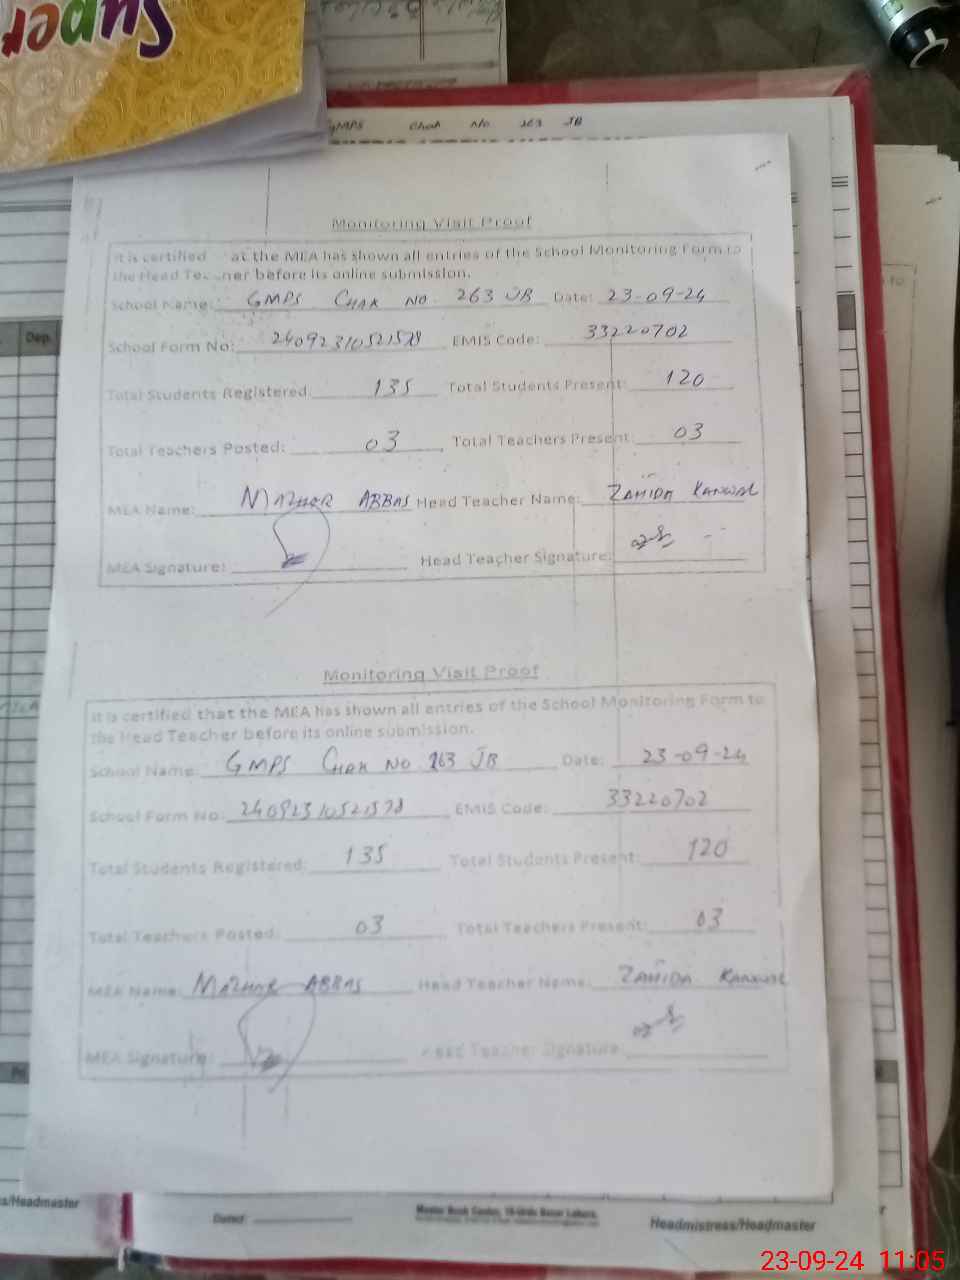 Super
GMPS Chak No 263 JB
Monitoring Visit Proof
It is certified at the MEA has shown all entries of the School Monitoring Form to
the Head Teacher before its online submission.
School Name: GMPS CHAK NO. 263 JB Date: 23-09-24
School Form No: EMIS Code: 33220702
Total Students Registered: 135 Total Students Present: 120
Total Teachers Posted: 03 Total Teachers Present: 03
MEA Name: MAZHAR ABBAS Head Teacher Name: ZAHIDA KANWAL
MEA Signature: Head Teacher Signature:
Monitoring Visit Proof
It is certified that the MEA has shown all entries of the School Monitoring Form to
the Head Teacher before its online submission.
School Name: GMPS CHAK NO 263 JB Date: 23-09-24
School Form No: EMIS Code: 33220702
Total Students Registered: 135 Total Students Present: 120
Total Teachers Posted: 03 Total Teachers Present: 03
MEA Name: MAZHAR ABBAS Head Teacher Name: ZAHIDA KANWAL
MEA Signature: Head Teacher Signature:
Dep.
s/Headmaster
Dated
Master Book Centre, 10-Urdu Bazar Lahore.
Headmistress/Headmaster
23-09-24 11:05